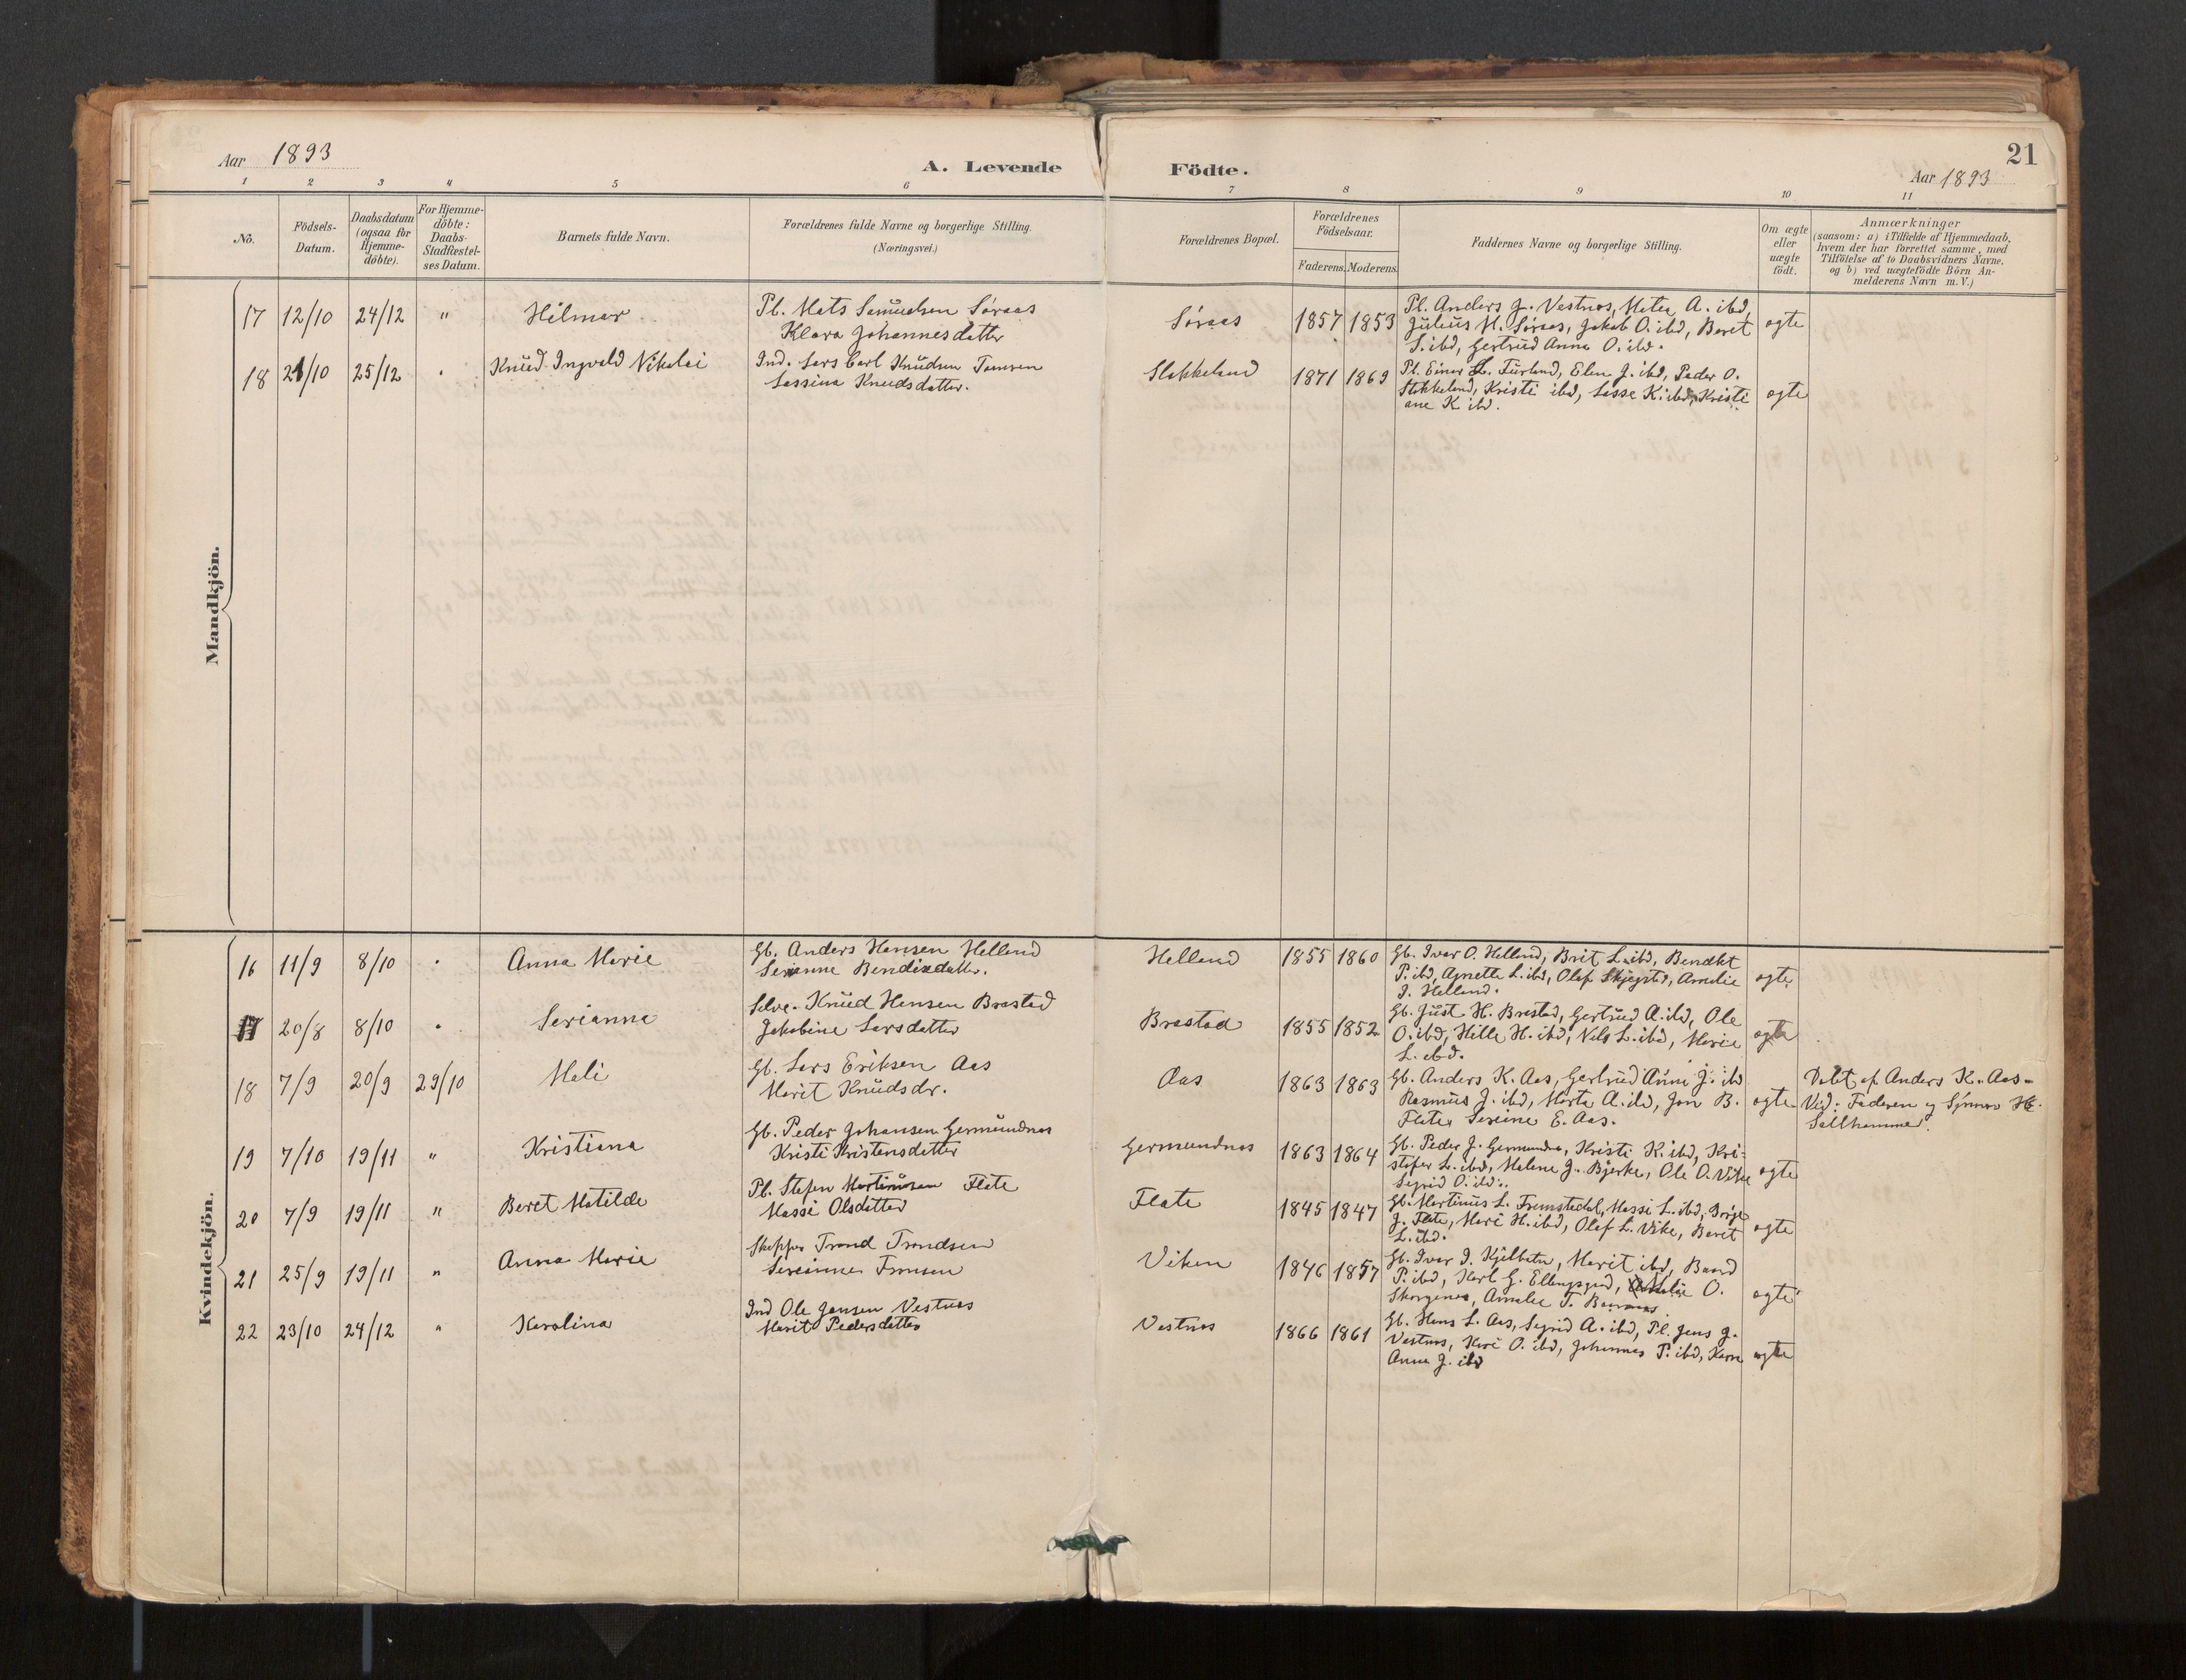 Aar 1893
A. Levende Födte.
21
Aar 1893
1 2 3 4 5 6 7 8 9 10 11
No.
Födsels-
Datum.
Daabsdatum
(ogsaa for
Hjemme-
döbte).
For Hjemme-
döbte:
Daabs-
Stadfæstel-
ses Datum.
Barnets fulde Navn.
Forældrenes fulde Navne og borgerlige Stilling.
(Næringsvei.)
Forældrenes Bopæl.
Forældrenes
Födselsaar.
Faderens. Moderens.
Faddernes Navne og borgerlige Stilling.
Om ægte
eller
uægte
födt.
Anmærkninger
(saasom: a) i Tilfælde af Hjemmedaab,
hvem der har forrettet samme, med
Tilföielse af to Daabsvidners Navne,
og b) ved uægtefödte Börn An-
melderens Navn m. V.)
Mandkjön.
17 12/10 24/12 " Hilmar
Pl. Mats Samuelsen Søraas
Klara Johannesdatter
Søraas 1857 1853
Pl. Anders J. Vestnes, Metea A. ibd,
Julius M. Søraas, Jakob O. ibd, Beret
S. ibd, Gertrud Anna O. ibd.
ægte
18 21/10 25/12 " Knud Ingvald Nikolai
Ind. Lars Carl Knudsen
Lassina Knudsdatter.
Stokkeland 1871 1869
Pl. Einar L. Furland, Elen J. ibd, Peder O.
Stokkeland, Kristi ibd, Lasse K. ibd, Kristi
ane K ibd.
ægte
Kvindekjön.
16 11/9 8/10 " Anna Marie
Gb. Anders Hansen Helland
Serianne Bendixdatter.
Helland 1855 1860
Gb. Ivar O. Helland, Brit L. ibd, Bendikt
P. ibd, Agnette L. ibd, Olaf Amalie
I. Helland.
ægte
17 20/8 8/10 " Serianna
Selve. Knud Hansen Brastad
Jakobine Larsdatter
Brastad 1855 1852
Gb. Just H. Brastad, Gertrud A. ibd, Ole
O. ibd, Hille H. ibd, Nils L. ibd, Marie
L. ibd.
ægte
18 7/9 20/9 29/10 Mali
Gb. Lars Eriksen Aas
Marit Knudsdr.
Aas 1863 1863
Gb. Anders K. Aas, Gertrud Anna J. ibd
Rasmus J. ibd, Marta A. ibd, Jon B.
Flate, Sereine E. Aas.
ægte
Døbt af Anders K. Aas-
Vid: Faderen og Synnøv H.
Sollhammer.
19 7/10 19/11 " Kristiana
Gb. Peder Johansen Germundnes
Kristi Kristensdatter
Germundnes 1863 1864
Gb. Peder J. Germundnes, Kristi K. ibd, Kri-
stofer L. ibd, Malene J. Bjerke, Ole O. Vike
Sigrid O. ibd.
ægte
20 7/9 19/11 " Beret Matilde
Pl. Stefen Martinusen Flate
Massi Olsdatter
Flate 1845 1847
Gb. Martinus L. Fremstedal, Massi L. ibd, Børge
J. Flate, Mari H. ibd, Olaf L. Vike, Beret
L. ibd.
ægte
21 25/9 19/11 " Anna Marie
Skipper Trond Trondsen
Serianne
Viken 1846 1857
Gb. Ivar I. Kjelbotn, Marit ibd, Baard
P. ibd, Karl G. Ellingsgard, O.
Skorgenes, Amalie T.
ægte
22 23/10 24/12 " Karolina
Ind Ole Jansen Vestnes
Marit Pedersdatter
Vestnes 1866 1861
Gb. Hans L. Aas, Sigrid A. ibd, Pl. Jens J.
Vestnes, Kari O. ibd, Johannes P. ibd, Karen
Anna J. ibd
ægte